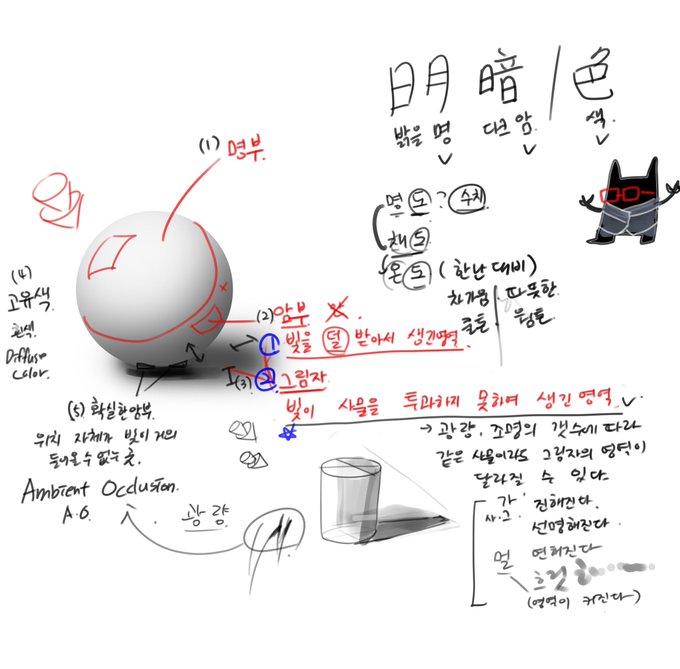 明 暗 / 色
밝을 명 다크 암. 색
(1) 명부
명도? 수치
채도
온도 (한난 대비)
차가움 따뜻한
쿨톤 웜톤
(4)
고유색
흰색
Diffuse
Color.
(2) 암부
① 빛을 덜 받아서 생긴영역
(3) ② 그림자
빛이 사물을 투과하지 못하여 생긴 영역
→ 광량, 조명의 갯수에 따라
같은 사물이라도 그림자의 영역이
달라질 수 있다.
(5) 확실한암부.
위치 자체가 빛이 거의
들어올 수 없는 곳.
Ambient Occlusion.
A.O.
광량
가 진해진다.
사.그. 선명해진다.
멀 연해진다
흐림
(영역이 커진다)